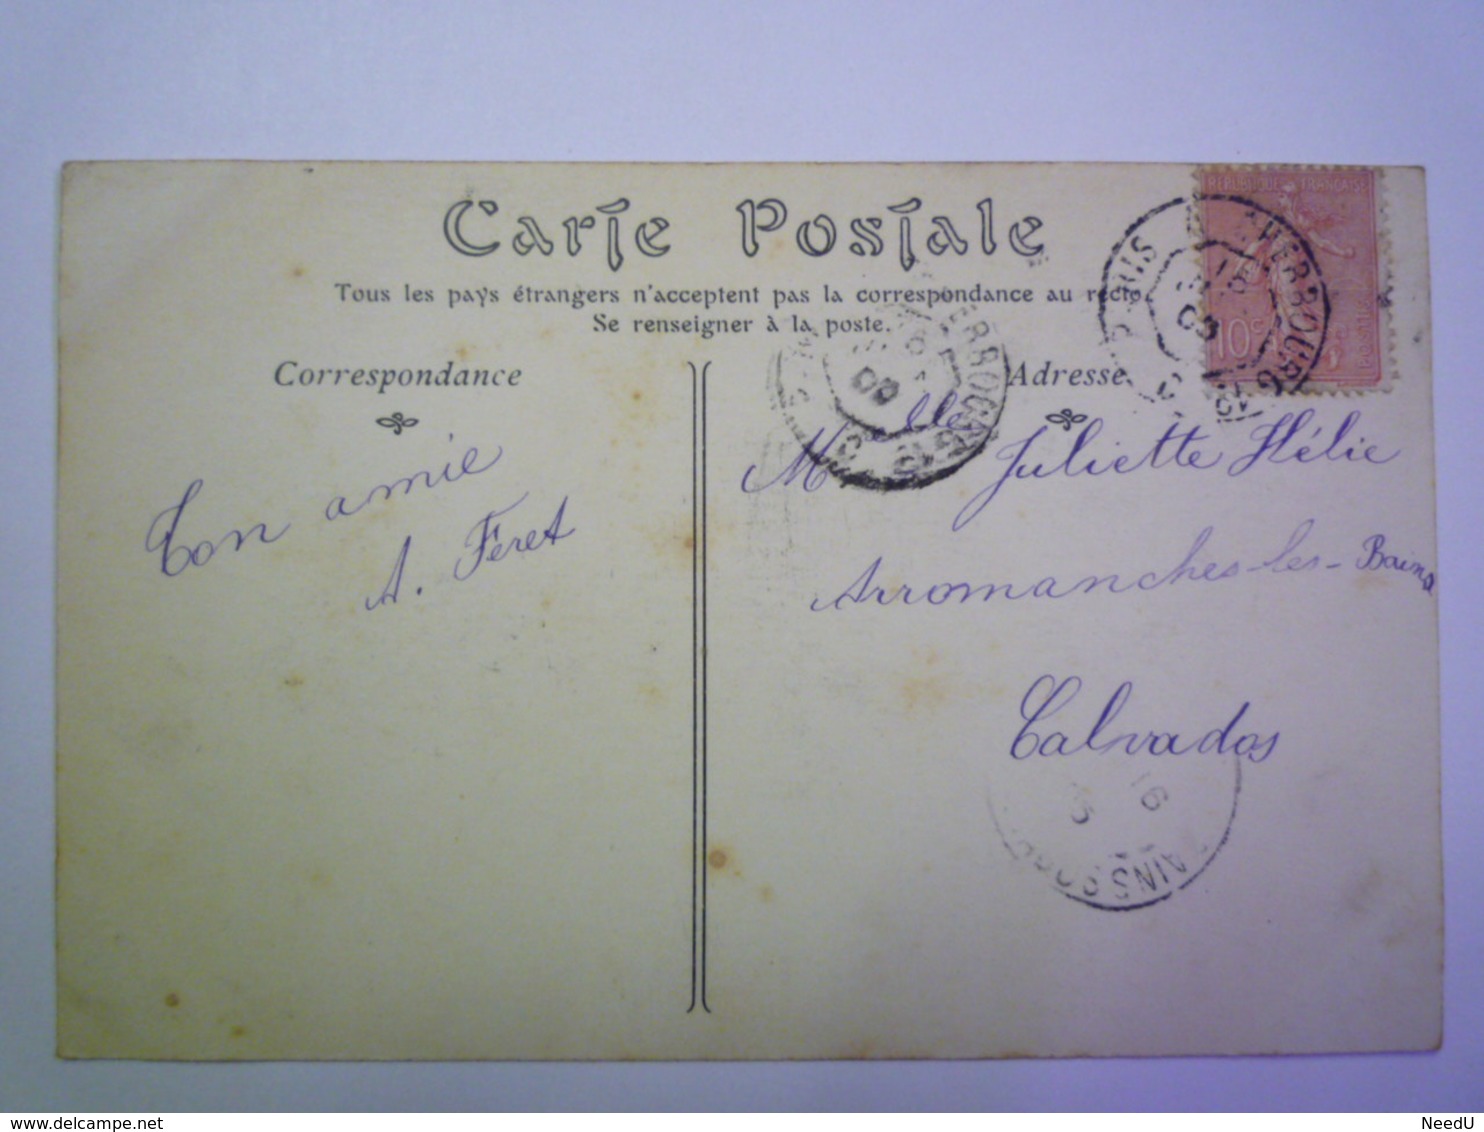 Carte Postale
Tous les pays étrangers n'acceptent pas la correspondance au recto.
Se renseigner à la poste.
Correspondance
Adresse
Ton amie
A. Feret
Melle Juliette Hélie
Arromanches-les-Bains
Calvados
REPUBLIQUE FRANÇAISE
10c
CHERBOURG
16
NeedU